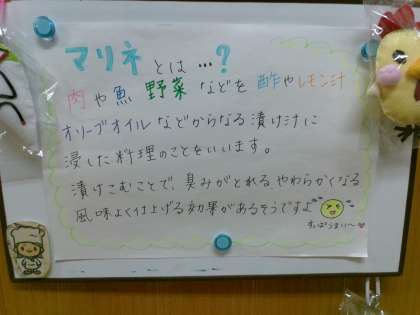 マリネとは…?
肉や魚 野菜などを 酢やレモン汁
オリーブオイルなどからなる漬け汁に
浸した料理のことをいいます。
漬けこむことで、臭みがとれる やわらかくなる
風味よく仕上げる効果があるそうですよ
すっぱうまい〜